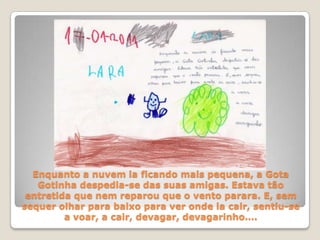 LARA
Enquanto a nuvem ia ficando mais
pequena, a Gota Gotinha despedia-se das
suas amigas. Estava tão entretida que nem
reparou que o vento parara. E, sem sequer
olhar para baixo para ver onde ia cair, sentiu-se
a voar,
a cair,
devagar
devagarinho
Enquanto a nuvem ia ficando mais pequena, a Gota
Gotinha despedia-se das suas amigas. Estava tão
entretida que nem reparou que o vento parara. E, sem
sequer olhar para baixo para ver onde ia cair, sentiu-se
a voar, a cair, devagar, devagarinho….